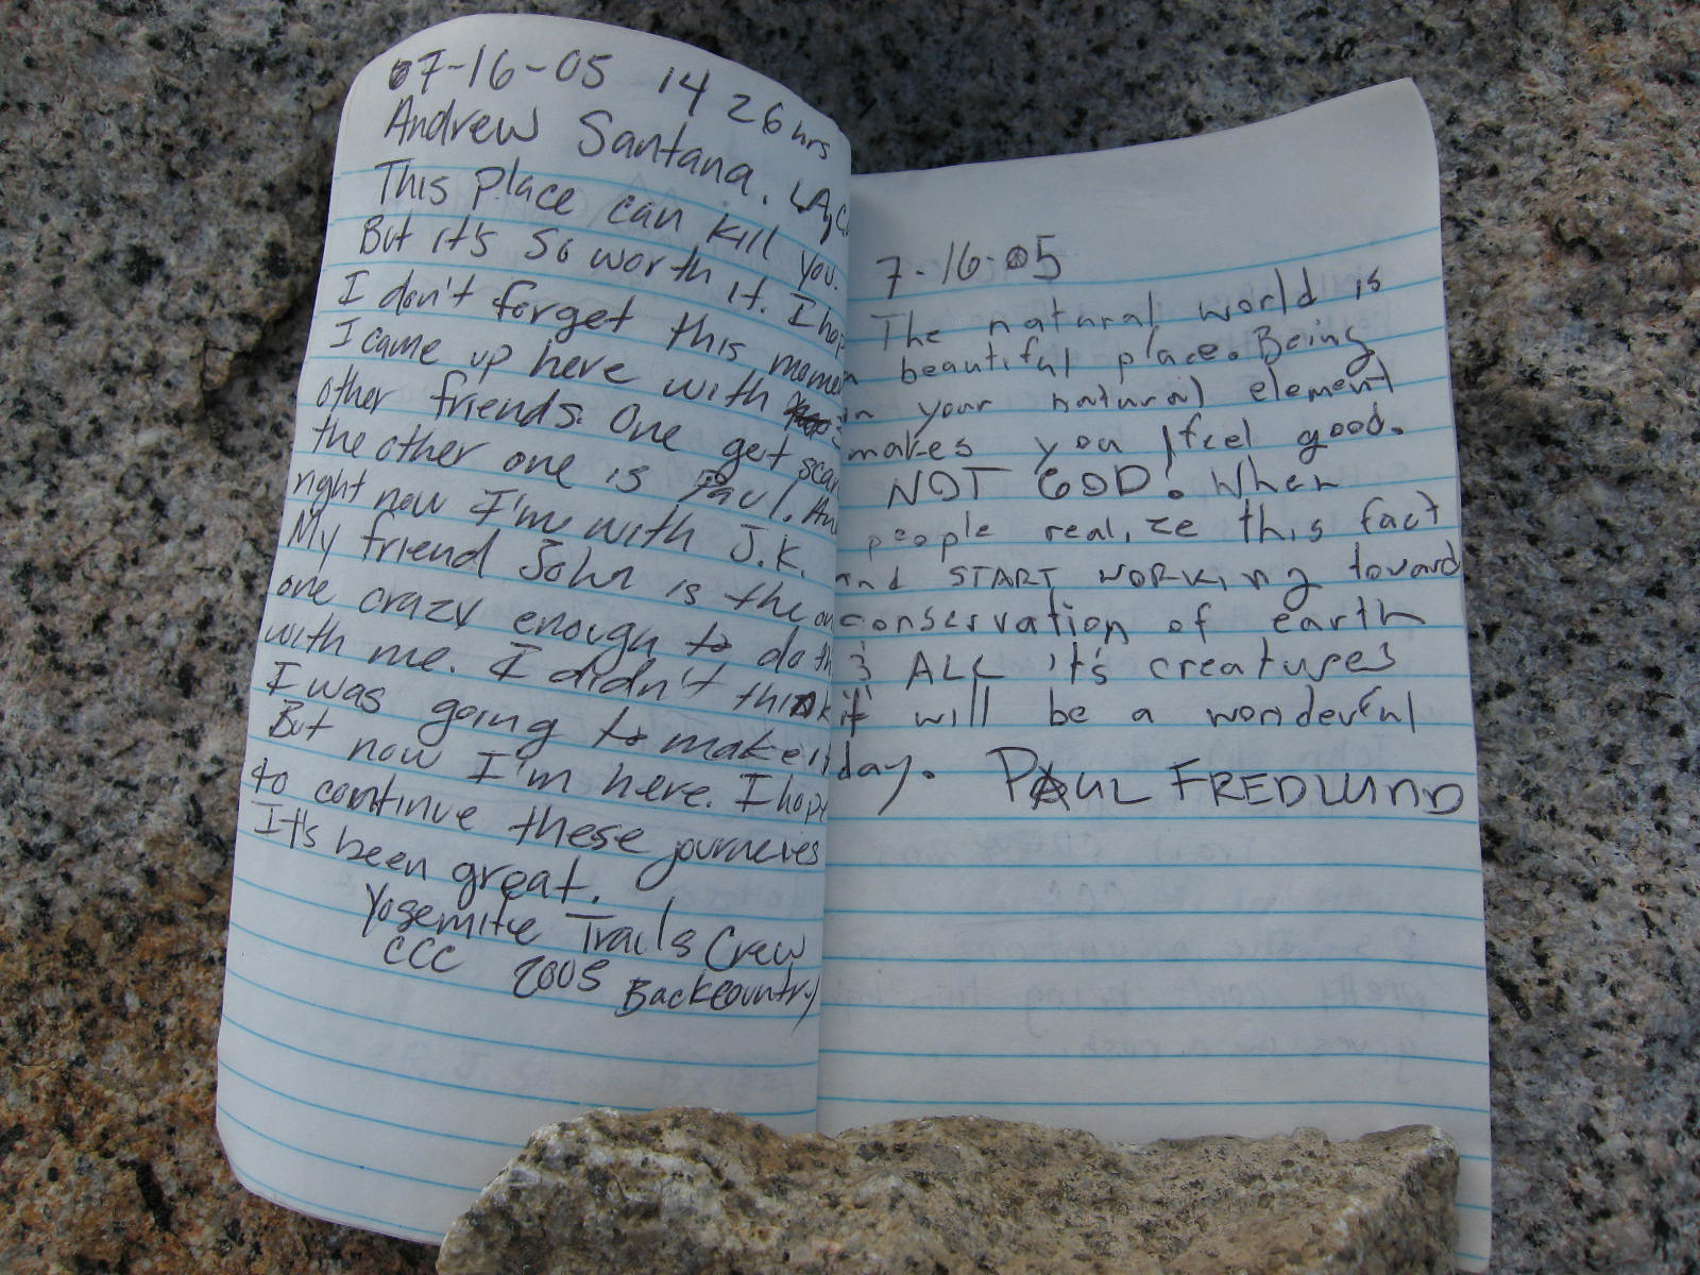 07-16-05 14 26 hrs
Andrew Santana. LA, C
This place can kill you.
But it's so worth it. I hop
I don't forget this momen
I came up here with
other friends. One get scar
the other one is Paul. An
right now I'm with J.K.
My friend John is the on
one crazy enough to do th
with me. I didn't think
I was going to make it
But now I'm here. I hope
to continue these journeies
It's been great.
Yosemite Trails Crew
CCC 2005 Backcountry
7-16-05
The natural world is
a beautiful place. Being
in your natural element
makes you feel good.
NOT GOD! When
people realize this fact
and START WORKING toward
conservation of earth
& ALL it's creatures
it will be a wonderful
day. PAUL FREDLUND